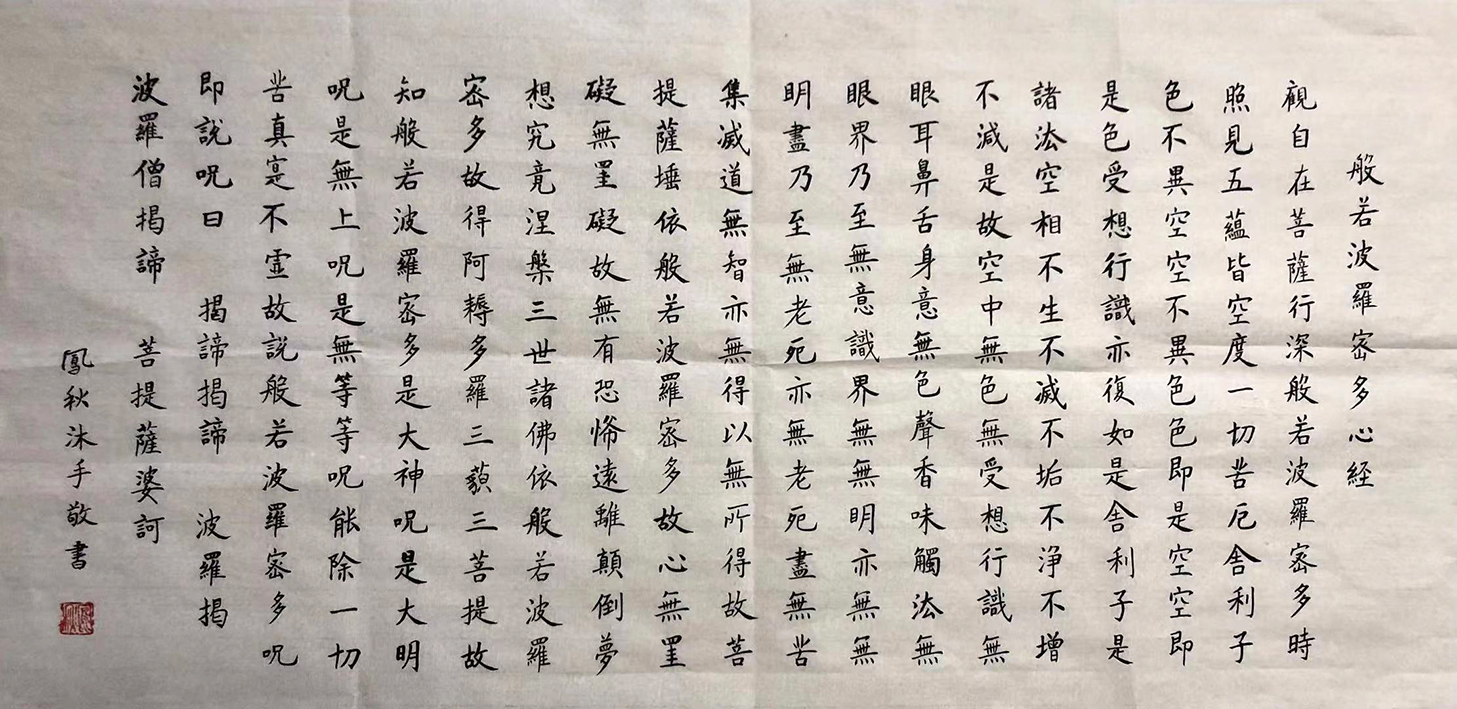 般若波羅密多心経
觀自在菩薩行深般若波羅密多時
照見五蘊皆空度一切苦厄舍利子
色不異空空不異色色即是空空即
是色受想行識亦復如是舍利子是
諸法空相不生不滅不垢不淨不增
不減是故空中無色無受想行識無
眼耳鼻舌身意無色聲香味觸法無
眼界乃至無意識界無無明亦無無
明盡乃至無老死亦無老死盡無苦
集滅道無智亦無得以無所得故菩
提薩埵依般若波羅密多故心無罣
礙無罣礙故無有恐怖遠離顛倒夢
想究竟涅槃三世諸佛依般若波羅
密多故得阿耨多羅三藐三菩提故
知般若波羅密多是大神呪是大明
呪是無上呪是無等等呪能除一切
苦真寔不虛故説般若波羅密多呪
即説呪曰 揭諦揭諦 波羅揭
波羅僧揭諦 菩提薩婆訶
鳳秋沐手敬書